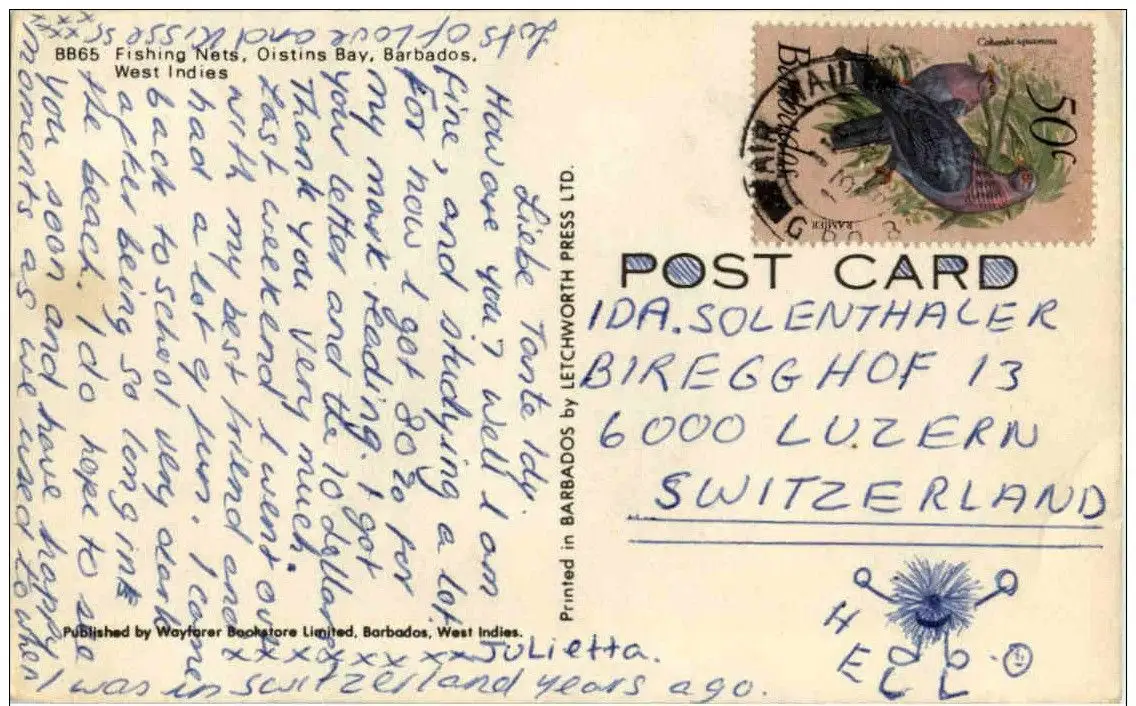 BB65 Fishing Nets, Oistins Bay, Barbados,
West Indies
Liebe Tante Idy.
How are you? Well I am
fine, and studying a lot.
For now I got 80% for
my mark reading. I got
your letter and the 10 dollars
Thank you very much.
Last weekend I went over
with my best friend and
had a lot of fun. I came
back to school very dark
after being so long in
the beach. I do hope to see
you soon and have happy
moments as we used to when
I was in Switzerland years ago.
Lots of Love and Kisses
xxx
xxxxxxxxx Julietta.
Published by Wayfarer Bookstore Limited, Barbados, West Indies.
Printed in BARBADOS by LETCHWORTH PRESS LTD.
Columba squamosa
Barbados
50c
RAMIER
AIR MAIL
POST CARD
IDA. SOLENTHALER
BIREGGHOF 13
6000 LUZERN
SWITZERLAND
HELLO